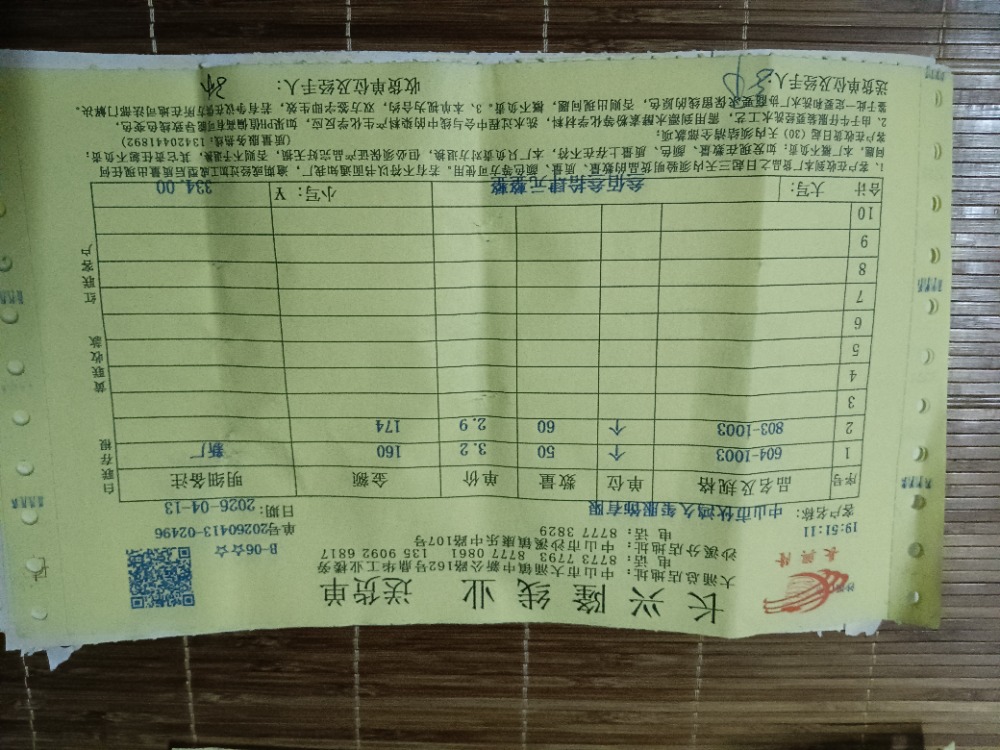 长兴隆线业 送货单
大涌总店地址：中山市大涌镇中新公路162号鼎华工业楼旁
电话：8773 7793 8777 0861 135 9092 6817
沙溪分店地址：中山市沙溪镇康乐中路107号
电话：8777 3829
长兴隆
B-06☆☆
19:51:11
单号20260413-02496
客户名称：中山市伙鸿久制服饰有限
日期：2026-04-13
序号 品名及规格 单位 数量 单价 金额 明细备注
1 604-1003 个 50 3.2 160 新厂
2 803-1003 个 60 2.9 174
3
4
5
6
7
8
9
10
合计 大写：叁佰叁拾肆元整 小写：￥ 334.00
白联存根
黄联收款
红联客户
1、客户在收到本厂货品之日起三天内须验明货品的数量、质量、颜色等方可使用，若有不符以书面通知我厂，逾期或经过加工成型后质量出现任何
问题，本厂概不负责；如发现在数量、颜色、质量上存在不符，本厂只负责对方退换，但必须保证产品完好无损，否则不退换，其它责任概不负责；
客户在收货日起（30）天内须结清全部款项； （质量服务热线：13420041892）
2、由于牛仔服装要经洗水工艺，需用到漂水酵素粉等化学材料，洗水过程中会与线中的染料产生化学反应，如果PH值偏高有可能导致线色变色，
鉴于此一定要和洗水厂协商要求保留线的原色，否则出现问题，概不负责。3、本单视为合约，双方签字即生效，若有争议在供方所在地司法部门解决。
送货单位及经手人： 收货单位及经手人：